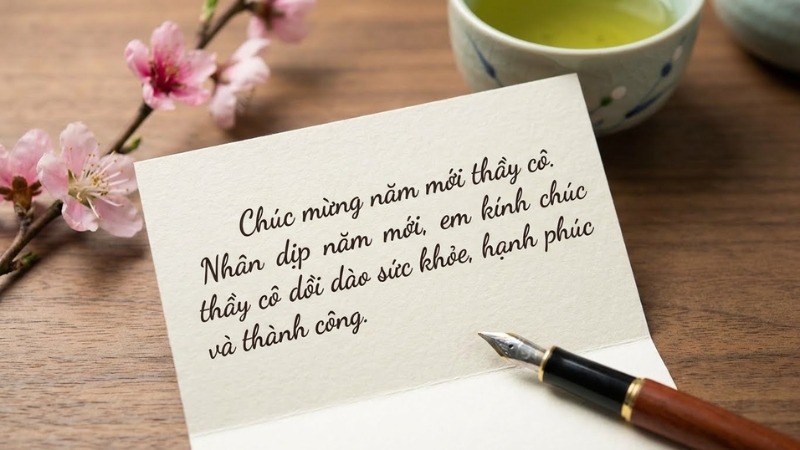 Chúc mừng năm mới thầy cô.
Nhân dịp năm mới, em kính chúc
thầy cô dồi dào sức khỏe, hạnh phúc
và thành công.